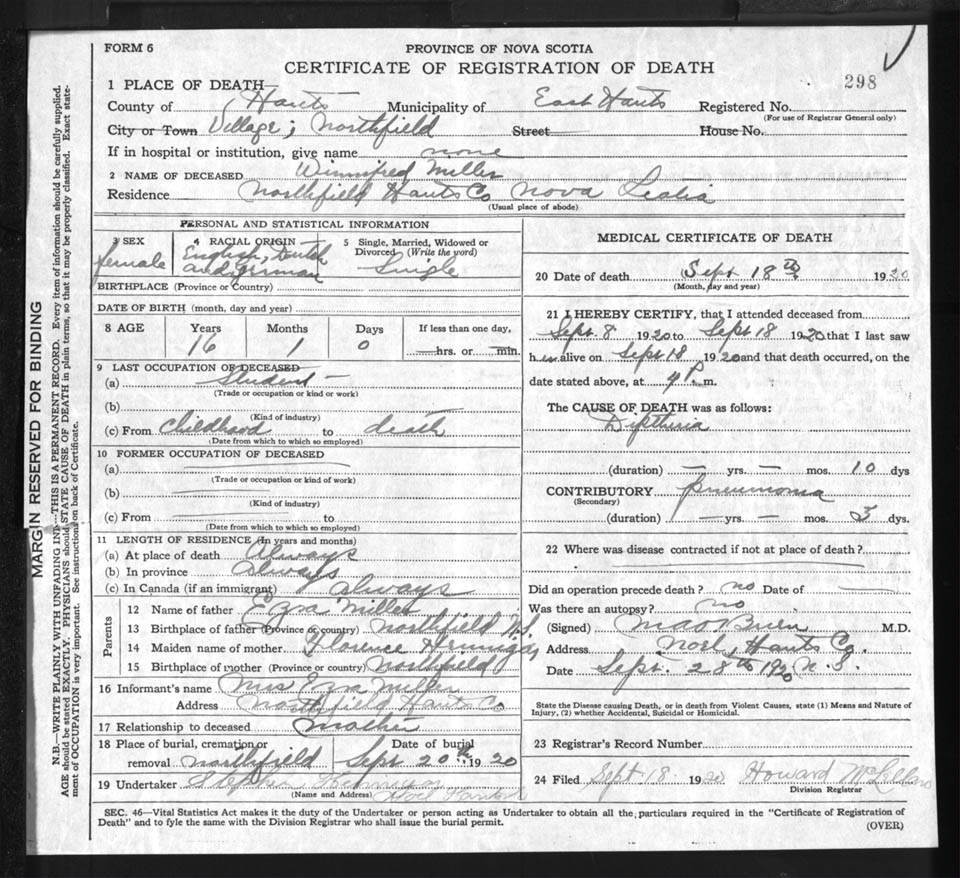 FORM 6
PROVINCE OF NOVA SCOTIA
CERTIFICATE OF REGISTRATION OF DEATH
298
1 PLACE OF DEATH
County of Hants Municipality of East Hants Registered No.
(For use of Registrar General only)
City or Town Village; Northfield Street House No.
If in hospital or institution, give name none
2 NAME OF DECEASED Winnifred Miller
Residence Northfield Hants Co Nova Scotia
(Usual place of abode)
PERSONAL AND STATISTICAL INFORMATION
3 SEX female
4 RACIAL ORIGIN English, Dutch and German
5 Single, Married, Widowed or Divorced (Write the word) Single
BIRTHPLACE (Province or Country)
DATE OF BIRTH (month, day and year)
8 AGE Years Months Days If less than one day,
16 1 0 hrs. or min.
9 LAST OCCUPATION OF DECEASED
(a) Student
(Trade or occupation or kind or work)
(b)
(Kind of industry)
(c) From childhood to death
(Date from which to which so employed)
10 FORMER OCCUPATION OF DECEASED
(a)
(Trade or occupation or kind of work)
(b)
(Kind of industry)
(c) From to
(Date from which to which so employed)
11 LENGTH OF RESIDENCE (In years and months)
(a) At place of death Always
(b) In province always
(c) In Canada (if an immigrant) always
Parents
12 Name of father Ezra Miller
13 Birthplace of father (Province or country) Northfield N.S.
14 Maiden name of mother Florence
15 Birthplace of mother (Province or country) Northfield
16 Informant's name Mrs Ezra Miller
Address Northfield Hants Co
17 Relationship to deceased mother
18 Place of burial, cremation or removal Northfield Date of burial Sept 20th 1920
19 Undertaker Stephen
(Name and Address) Noel
MEDICAL CERTIFICATE OF DEATH
20 Date of death Sept 18th 1920
(Month, day and year)
21 I HEREBY CERTIFY, that I attended deceased from
Sept. 8 1920 to Sept 18 1920 that I last saw
her alive on Sept 18 1920 and that death occurred, on the
date stated above, at 4 P. m.
The CAUSE OF DEATH was as follows:
Diptheria
(duration) — yrs. — mos. 10 dys
CONTRIBUTORY pneumonia
(Secondary)
(duration) — yrs. — mos. 3 dys.
22 Where was disease contracted if not at place of death?
Did an operation precede death? no Date of
Was there an autopsy? no
(Signed) O'Brien M.D.
Address Noel, Hants Co.
Date Sept. 28th 1920 N.S.
State the Disease causing Death, or in death from Violent Causes, state (1) Means and Nature of
Injury, (2) whether Accidental, Suicidal or Homicidal.
23 Registrar's Record Number
24 Filed Sept 18 1920 Howard
Division Registrar
SEC. 46—Vital Statistics Act makes it the duty of the Undertaker or person acting as Undertaker to obtain all the particulars required in the "Certificate of Registration of
Death" and to fyle the same with the Division Registrar who shall issue the burial permit.
(OVER)
MARGIN RESERVED FOR BINDING
N.B.—WRITE PLAINLY WITH UNFADING INK—THIS IS A PERMANENT RECORD. Every item of information should be carefully supplied.
AGE should be stated EXACTLY. PHYSICIANS should STATE CAUSE OF DEATH in plain terms, so that it may be properly classified. Exact state-
ment of OCCUPATION is very important. See instructions on back of Certificate.